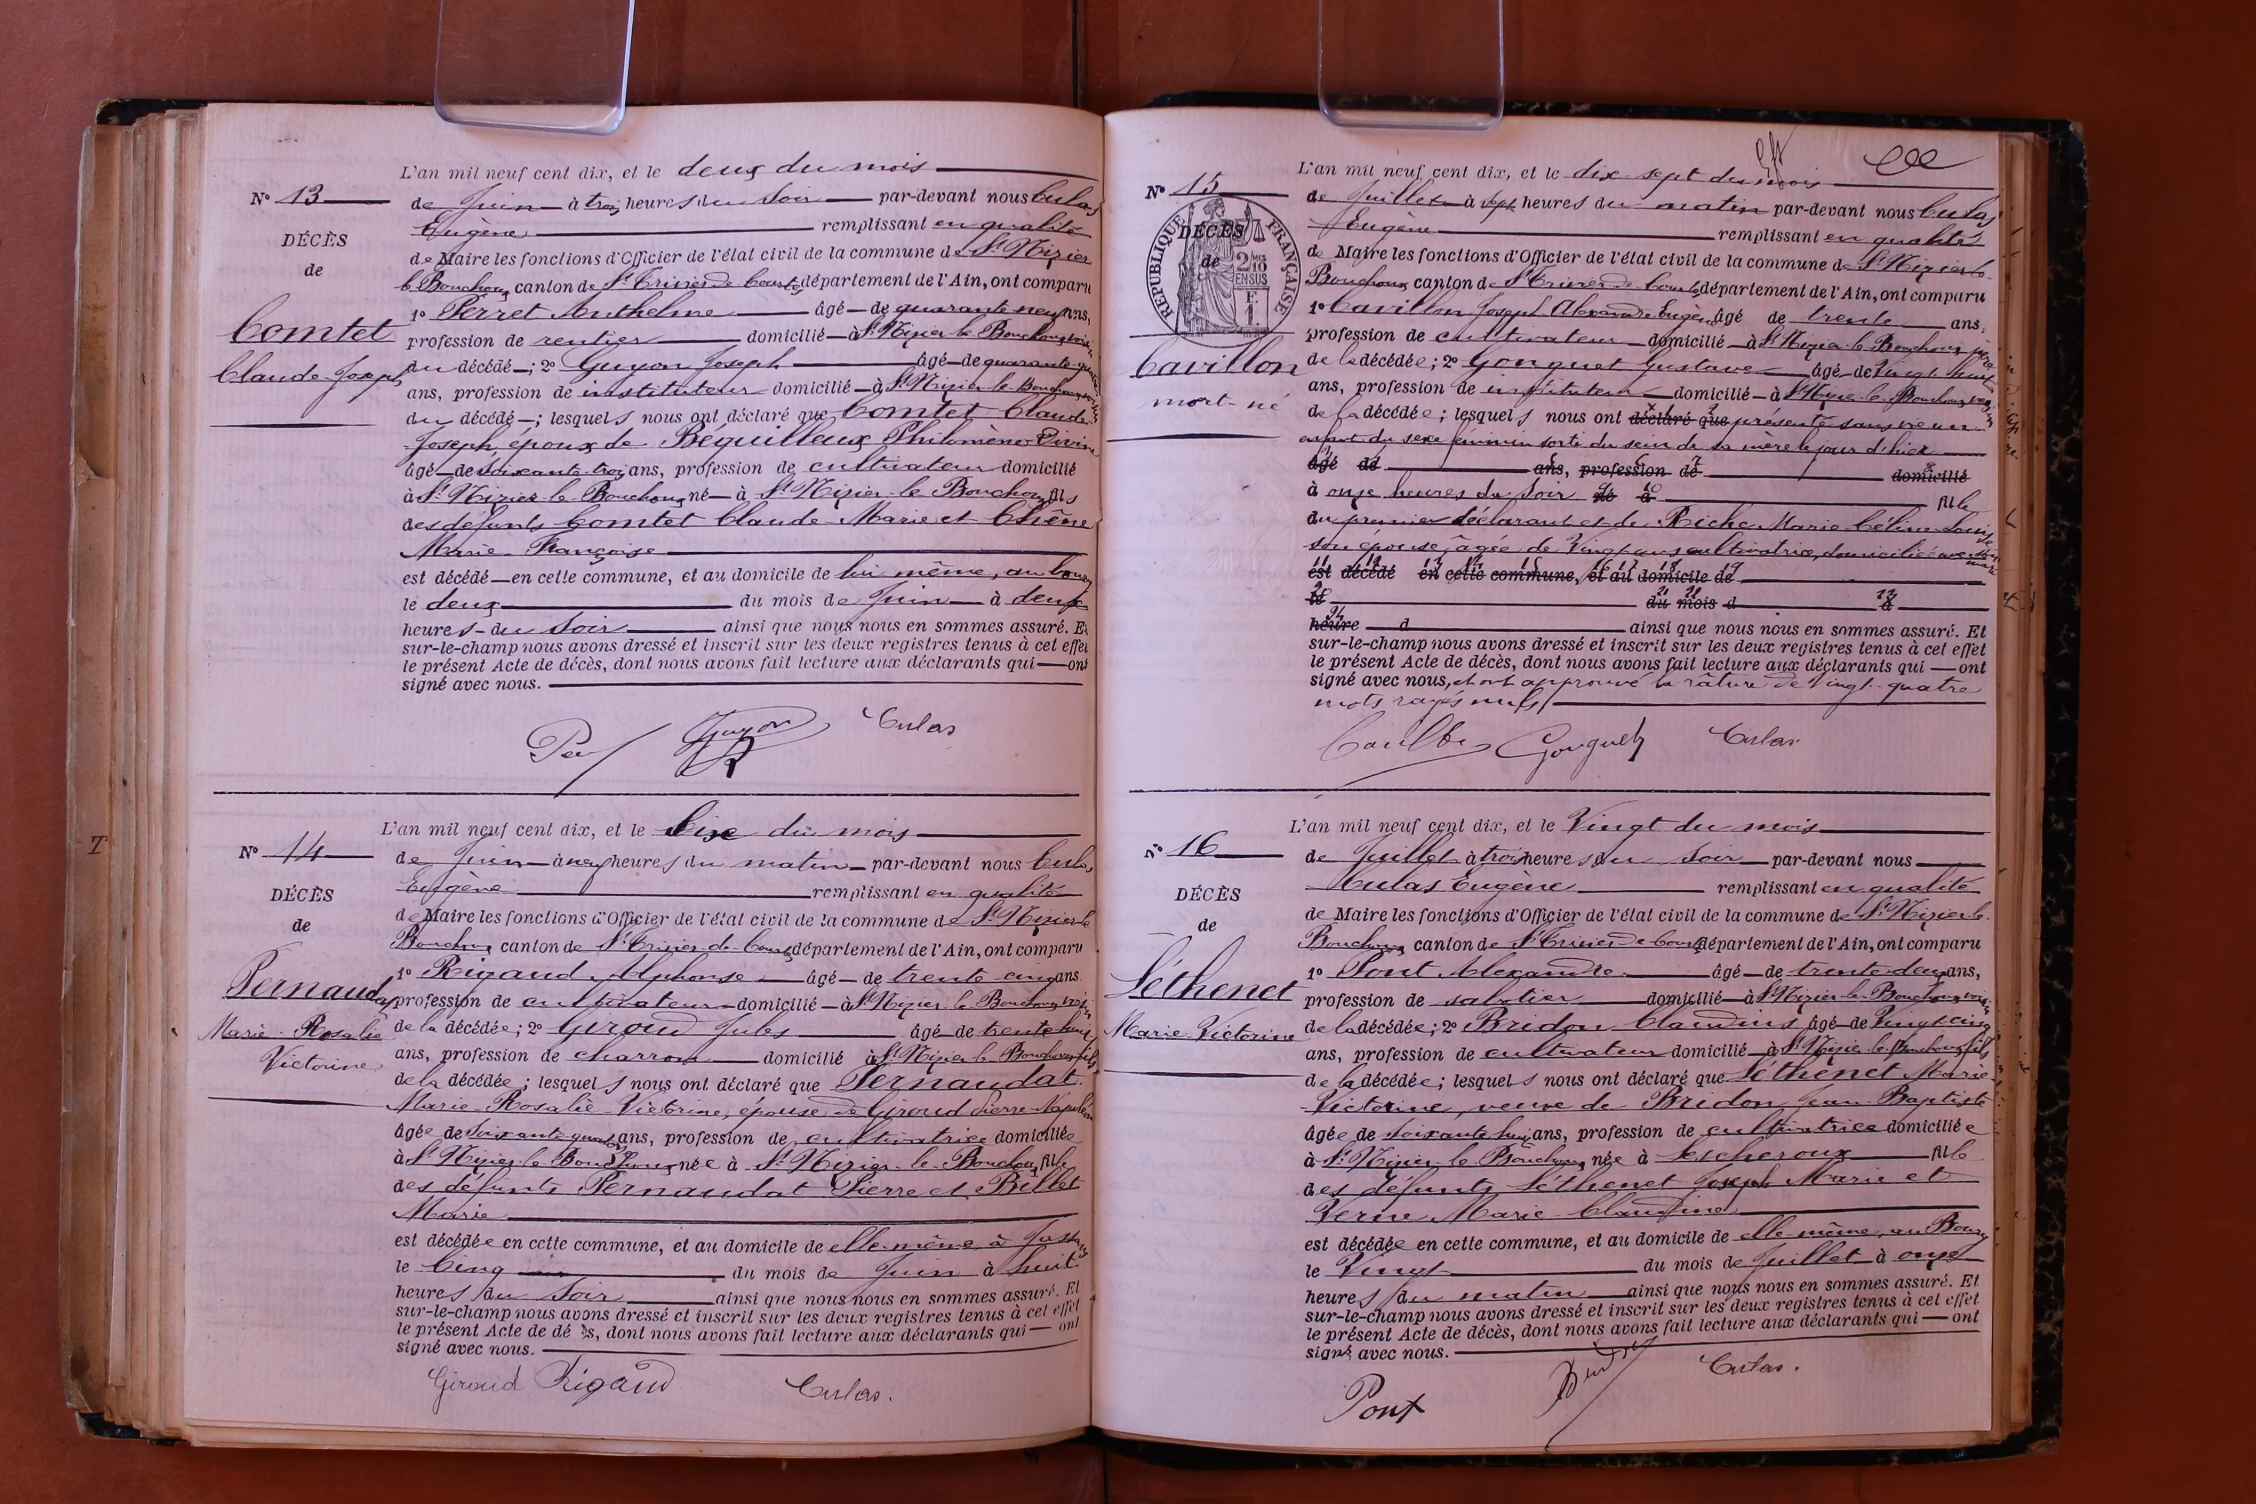 L'an mil neuf cent dix, et le deux du mois
N° 13
de Juin à trois heures du Soir par-devant nous Culas
Eugène remplissant en qualité
DÉCÈS
de Maire les fonctions d'Officier de l'état civil de la commune de St Nizier
de
le Bouchoux canton de St Trivier de Courtes département de l'Ain, ont comparu
1° Perret Anthelme âgé de quarante neuf ans,
Comtet
profession de rentier domicilié à St Nizier le Bouchoux voisin
Claude Joseph
du décédé ; 2° Guyon Joseph âgé de quarante
ans, profession de instituteur domicilié à St Nizier le Bouchoux voisin
du décédé ; lesquels nous ont déclaré que Comtet Claude
Joseph, époux de Béguilleux Philomène
âgé de soixante trois ans, profession de cultivateur domicilié
à St Nizier le Bouchoux né à St Nizier le Bouchoux fils
des défunts Comtet Claude Marie et Chêne
Marie Françoise
est décédé en cette commune, et au domicile de lui même, au bourg
le deux du mois de Juin à deux
heures du Soir ainsi que nous nous en sommes assuré. Et
sur-le-champ nous avons dressé et inscrit sur les deux registres tenus à cet effet
le présent Acte de décès, dont nous avons fait lecture aux déclarants qui ont
signé avec nous.
Guyon Culas
L'an mil neuf cent dix, et le Six du mois
N° 14
de Juin à neuf heures du matin par-devant nous Culas
Eugène remplissant en qualité
DÉCÈS
de Maire les fonctions d'Officier de l'état civil de la commune de St Nizier le
de
Bouchoux canton de St Trivier de Courtes département de l'Ain, ont comparu
Pernaudat
1° Rigaud Alphonse âgé de trente cinq ans
profession de cultivateur domicilié à St Nizier le Bouchoux voisin
Marie Rosalie
de la décédée ; 2° Giroud Jules âgé de trente huit
Victorine
ans, profession de charron domicilié à St Nizier le Bouchoux fils
de la décédée ; lesquels nous ont déclaré que Pernaudat
Marie Rosalie Victorine, épouse de Giroud Pierre Napoléon
âgée de soixante quatre ans, profession de cultivatrice domiciliée
à St Nizier le Bouchoux née à St Nizier le Bouchoux fille
des défunts Pernaudat Pierre et Billet
Marie
est décédée en cette commune, et au domicile de elle même, à
le Cinq du mois de Juin à huit
heures du Soir ainsi que nous nous en sommes assuré. Et
sur-le-champ nous avons dressé et inscrit sur les deux registres tenus à cet effet
le présent Acte de décès, dont nous avons fait lecture aux déclarants qui ont
signé avec nous.
Giroud Rigaud Culas.
L'an mil neuf cent dix, et le dix-sept du mois
N° 15
de Juillet à sept heures du matin par-devant nous Culas
Eugène remplissant en qualité
RÉPUBLIQUE FRANÇAISE
DÉCÈS
de Maire les fonctions d'Officier de l'état civil de la commune de St Nizier le
de
2/10 EN SUS
Bouchoux canton de St Trivier de Courtes département de l'Ain, ont comparu
1° Cavillon Joseph Alexandre Eugène âgé de trente ans,
profession de cultivateur domicilié à St Nizier le Bouchoux père
Cavillon
de la décédée ; 2° Gonguet Gustave âgé de vingt huit
mort-né
ans, profession de instituteur domicilié à St Nizier le Bouchoux voisin
de la décédée ; lesquels nous ont déclaré que présenté sans vie un
enfant du sexe féminin sorti du sein de sa mère le jour d'hier
âgé de ans, profession de domicilié
à onze heures du Soir né à fille
du premier déclarant et de Riche Marie Céline Louise
son épouse, âgée de Vingt ans cultivatrice, domiciliée avec son mari
est décédé en cette commune, et au domicile de
le du mois d à
heure d ainsi que nous nous en sommes assuré. Et
sur-le-champ nous avons dressé et inscrit sur les deux registres tenus à cet effet
le présent Acte de décès, dont nous avons fait lecture aux déclarants qui ont
signé avec nous, et ont approuvé la râture de Vingt-quatre
mots rayés nuls
Gonguet Culas
L'an mil neuf cent dix, et le Vingt du mois
N° 16
de Juillet à trois heures du Soir par-devant nous
Culas Eugène remplissant en qualité
DÉCÈS
de Maire les fonctions d'Officier de l'état civil de la commune de St Nizier le
de
Bouchoux canton de St Trivier de Courtes département de l'Ain, ont comparu
1° Pont Alexandre âgé de trente deux ans,
Séthenet
profession de sabotier domicilié à St Nizier le Bouchoux voisin
Marie Victorine
de la décédée ; 2° Bridon Claudius âgé de Vingt cinq
ans, profession de cultivateur domicilié à St Nizier le Bouchoux fils
de la décédée ; lesquels nous ont déclaré que Séthenet Marie
Victorine, veuve de Bridon Jean Baptiste
âgée de soixante huit ans, profession de cultivatrice domiciliée
à St Nizier le Bouchoux née à Lescheroux fille
des défunts Séthenet Joseph Marie et
Verne Marie Claudine
est décédée en cette commune, et au domicile de elle même, au Bourg
le Vingt du mois de Juillet à onze
heures du matin ainsi que nous nous en sommes assuré. Et
sur-le-champ nous avons dressé et inscrit sur les deux registres tenus à cet effet
le présent Acte de décès, dont nous avons fait lecture aux déclarants qui ont
signé avec nous.
Pont Culas.